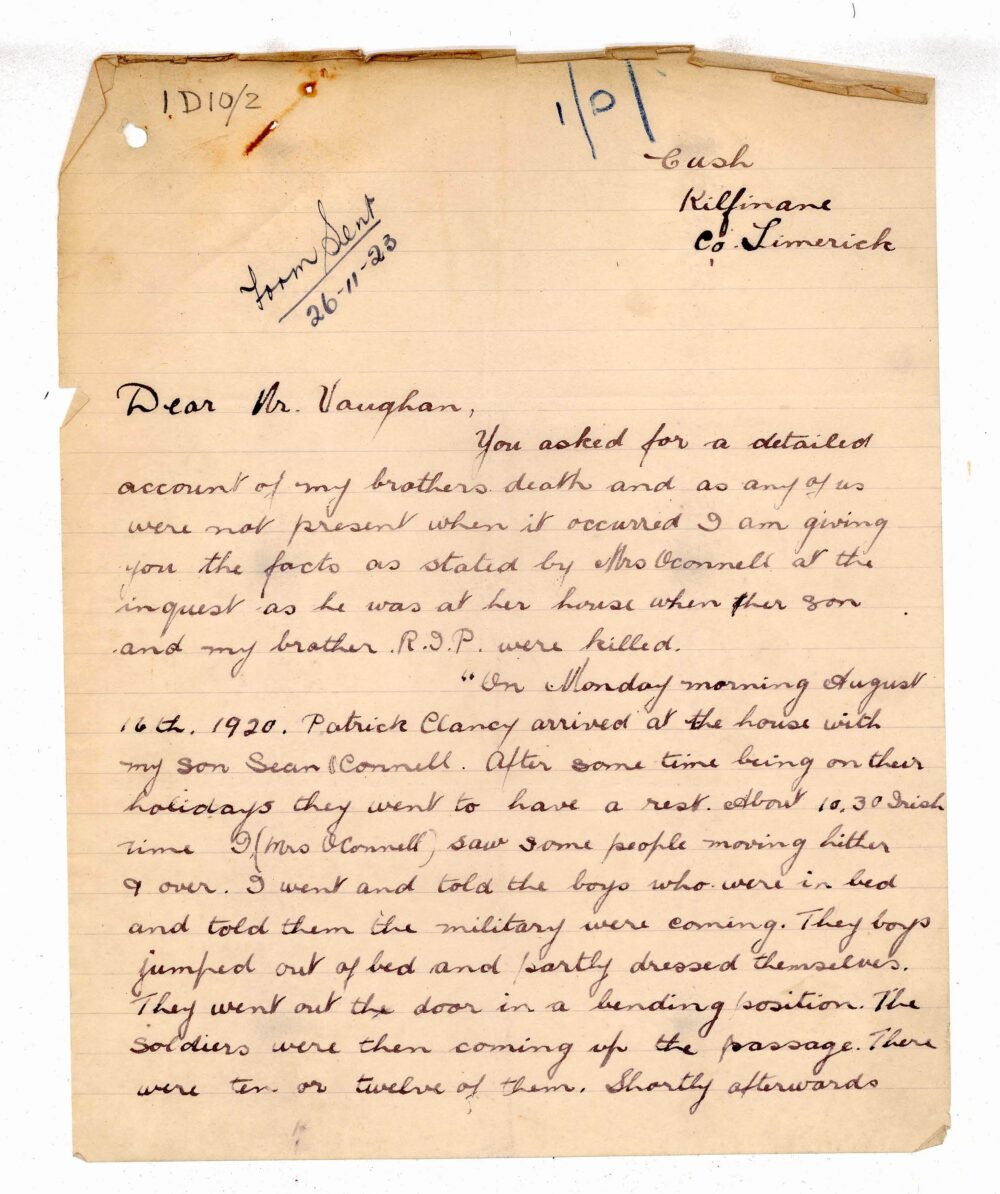 1D10/2
1/D/
Cush
Kilfinane
Co. Limerick
Form Sent
26-11-23
Dear Mr. Vaughan,
You asked for a detailed
account of my brothers death and as any of us
were not present when it occurred I am giving
you the facts as stated by Mrs Oconnell at the
inquest as he was at her house when her son
and my brother R.I.P. were killed.
"On Monday morning August
16th. 1920. Patrick Clancy arrived at the house with
my son Sean OConnell. After some time being on their
holidays they went to have a rest. About 10.30 Irish
time I, (Mrs OConnell) saw some people moving hither
& over. I went and told the boys who were in bed
and told them the military were coming. They boys
jumped out of bed and partly dressed themselves.
They went out the door in a bending position. The
Soldiers were then coming up the passage. There
were ten or twelve of them. Shortly afterwards